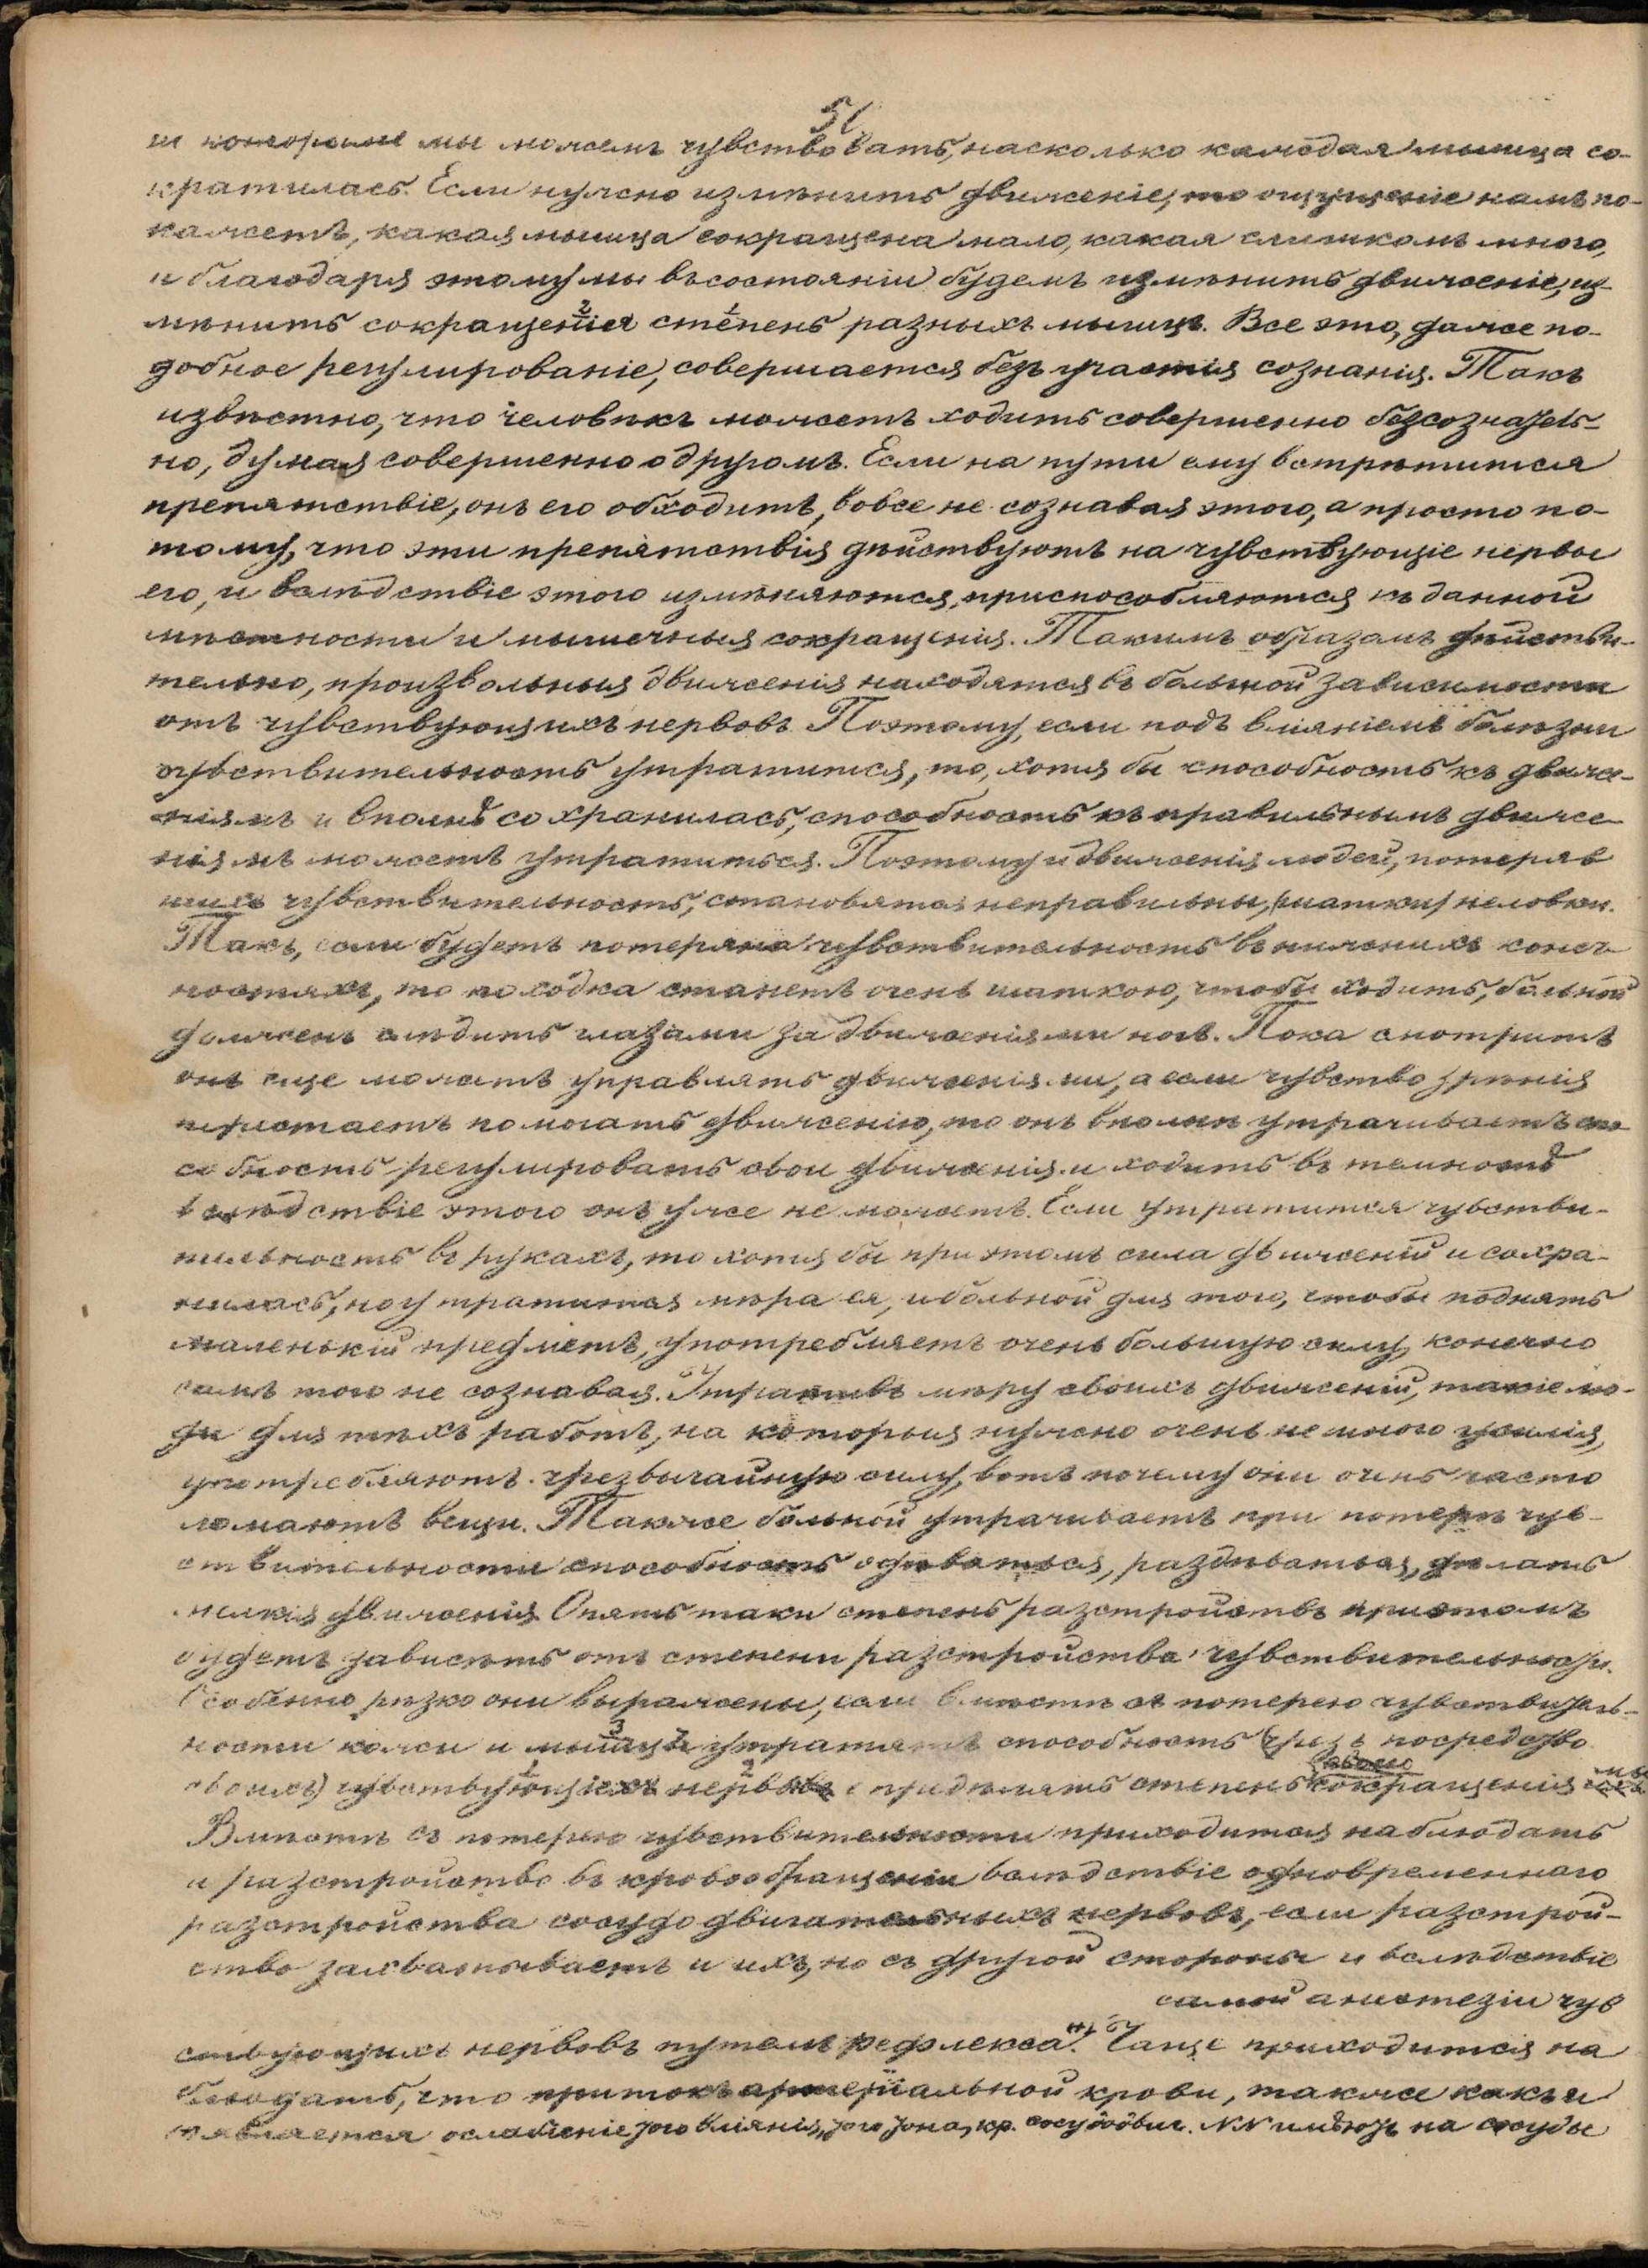 51
и которыя мы можемъ чувствовать, насколько каждая мышца со-
кратилась. Если нужно измѣнить движеніе, то ощущеніе намъ по-
кажетъ, какая мышца сокращена мало, какая слишкомъ много,
и благодаря этому мы въ состояніи будемъ измѣнить движеніе, из-
мѣнить сокращенія степень разныхъ мышцъ. Все это, даже по-
добное регулированіе, совершается безъ участія сознанія. Такъ
извѣстно, что человѣкъ можетъ ходить совершенно безсознатель-
но, думая совершенно о другомъ. Если на пути ему встрѣтится
препятствіе, онъ его обходитъ, вовсе не сознавая этого, а просто по-
тому, что эти препятствія дѣйствуютъ на чувствующіе нервы
его, и вслѣдствіе этого измѣняются, приспособляются къ данной
мѣстности и мышечныя сокращенія. Такимъ образомъ дѣйстви-
тельно, произвольныя движенія находятся въ большой зависимости
отъ чувствующихъ нервовъ. Поэтому, если подъ вліяніемъ болѣзни
чувствительность утратится, то, хотя бы способность къ движе-
ніямъ и вполнѣ сохранилась, способность къ правильнымъ движе
ніямъ можетъ утратиться. Поэтому и движенія людей, потеряв
шихъ чувствительность, становятся неправильны, шатки, неловки.
Такъ, если будетъ потеряна чувствительность въ нижнихъ конеч
ностяхъ, то походка станетъ очень шаткою, чтобы ходить, больной
долженъ слѣдить глазами за движеніями ногъ. Пока смотритъ
онъ еще можетъ управлять движеніями, а если чувство зрѣнія
перестаетъ помогать движенію, то онъ вполнѣ утрачиваетъ спо
собность регулировать свои движенія и ходить въ темнотѣ
вслѣдствіе этого онъ уже не можетъ. Если утратится чувстви-
тельность въ рукахъ, то хотя бы при этомъ сила движеній и сохра-
нилась, но утратится мѣра ея, и больной для того, чтобы поднять
маленькій предметъ, употребляетъ очень большую силу, конечно
самъ того не сознавая. Утративъ мѣру своихъ движеній, такіе лю-
ди для тѣхъ работъ, на которыя нужно очень немного усилія,
употребляютъ чрезвычайную силу, вотъ почему они очень часто
ломаютъ вещи. Также больной утрачиваетъ при потерѣ чув-
ствительности способность одѣваться, раздѣваться, дѣлать
мелкія движенія. Опять таки степень разстройствъ при этомъ
будетъ зависѣть отъ степени разстройства чувствительности.
Особенно рѣзко они выражены, если вмѣстѣ съ потерею чувствитель-
ности кожи и мышцы утратятъ способность (чрезъ посредство
своихъ) чувствующихъ нервовъ опредѣлять степень своего сокращенія
Вмѣстѣ съ потерею чувствительности приходится наблюдать
и разстройство въ кровообращеніи вслѣдствіе одновременнаго
разстройства сосудодвигательныхъ нервовъ, если разстрой-
ство захватываетъ и ихъ, но съ другой стороны и вслѣдствіе
самой анестезіи чув
ствующихъ нервовъ путемъ рефлекса. Чаще приходится на
блюдать, что притокъ артеріальной крови, также какъ и
является ослабленіе того вліянія, того тона, кр. сосудодвиг. NN имѣютъ на сосуды